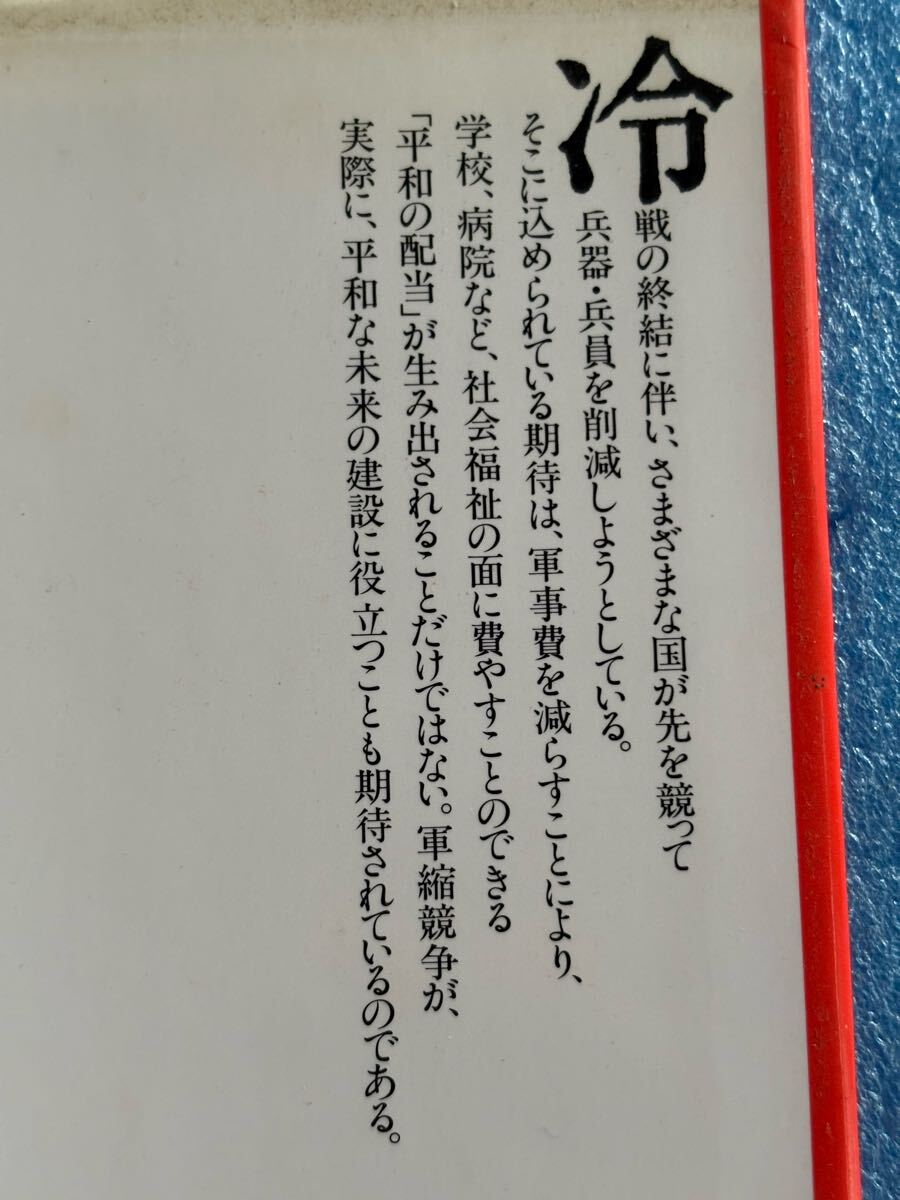 冷戦の終結に伴い、さまざまな国が先を競って
兵器・兵員を削減しようとしている。
そこに込められている期待は、軍事費を減らすことにより、
学校、病院など、社会福祉の面に費やすことのできる
「平和の配当」が生み出されることだけではない。軍縮競争が、
実際に、平和な未来の建設に役立つことも期待されているのである。